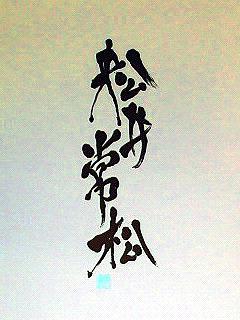 松井常松